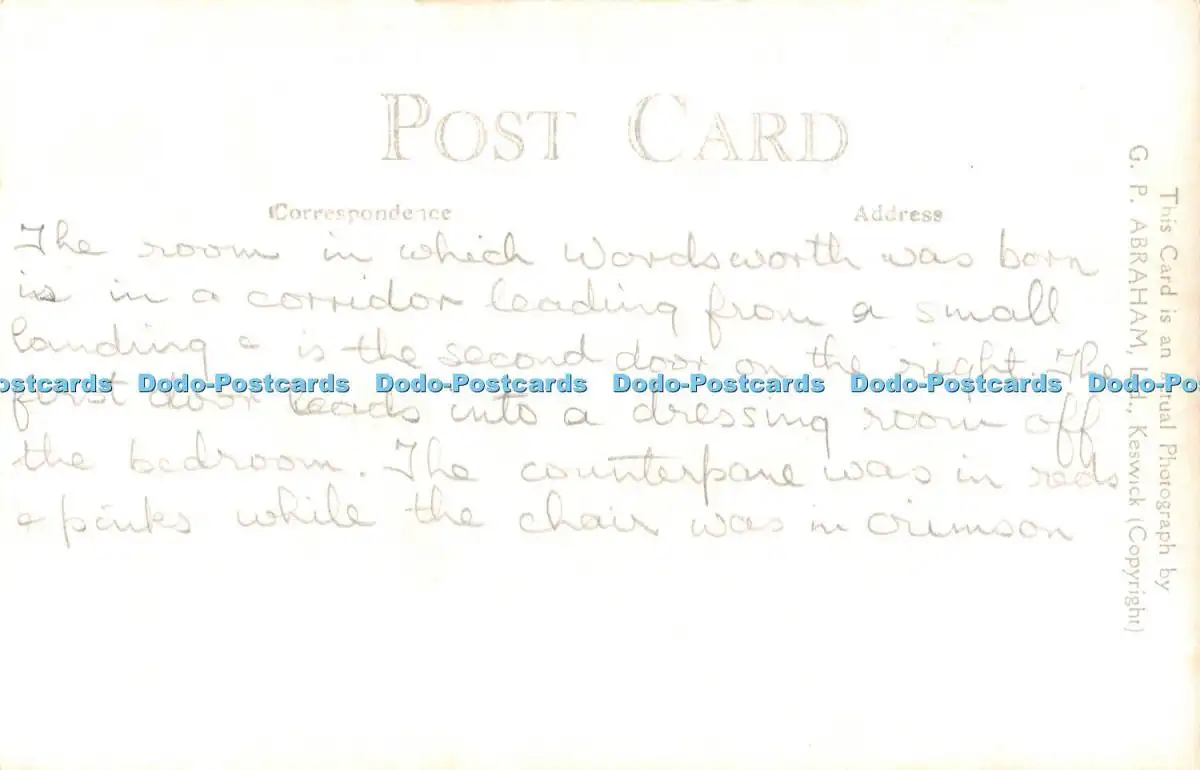 POST CARD
Correspondence
Address
The room in which Wordsworth was born
is in a corridor leading from a small
landing & is the second door on the right. The
first door leads into a dressing room off
the bedroom. The counterpane was in reds
& pinks while the chair was in crimson
This Card is an Actual Photograph by
G. P. ABRAHAM, Ltd., Keswick (Copyright)
Dodo-Postcards Dodo-Postcards Dodo-Postcards Dodo-Postcards Dodo-Postcards